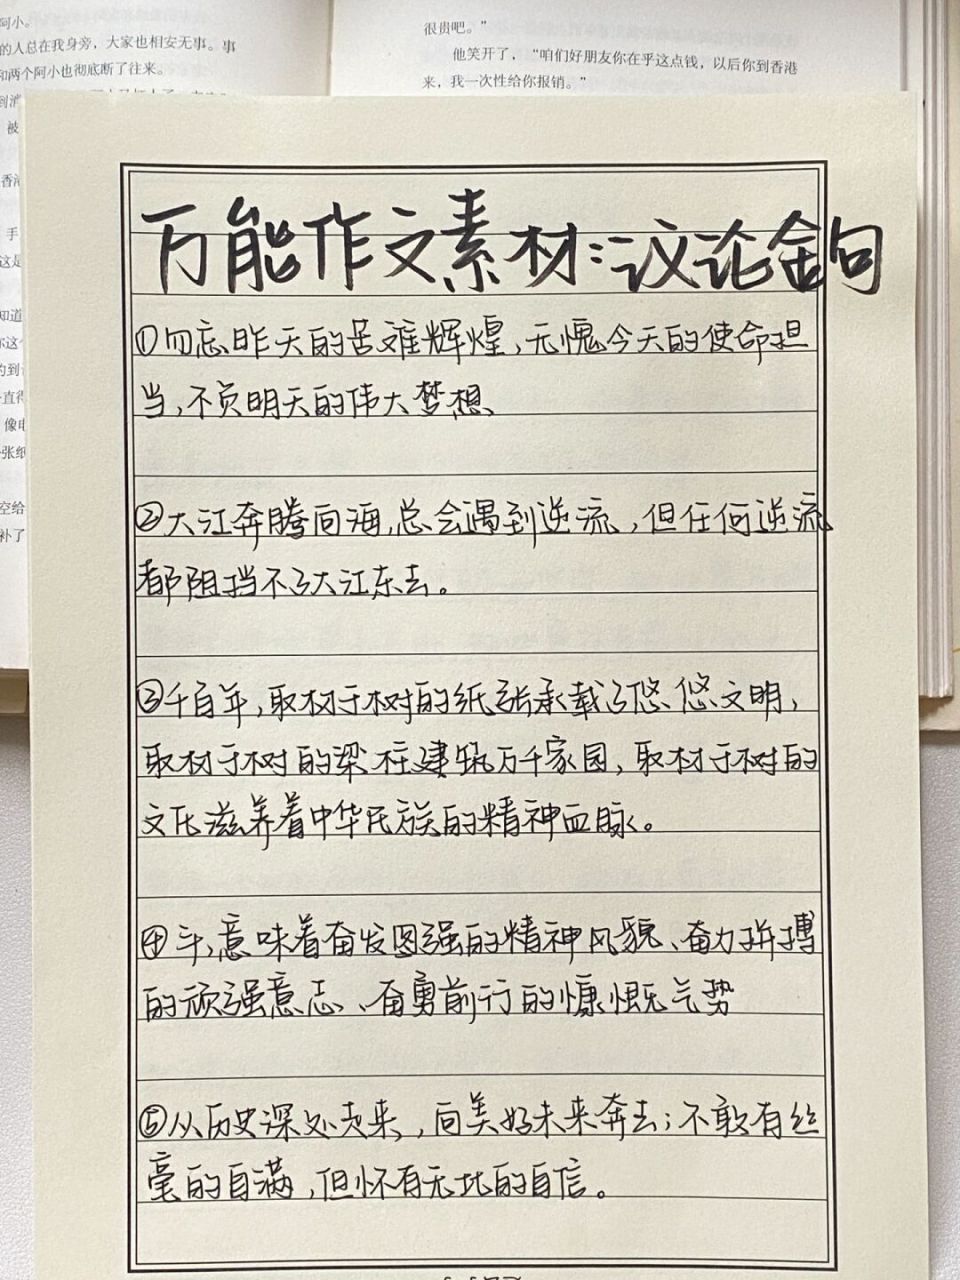 阿小。
的人总在我身旁，大家也相安无事。事
和两个阿小也彻底断了往来。
很贵吧。”
他笑开了，“咱们好朋友你在乎这点钱，以后你到香港
来，我一次性给你报销。”
被
香港
手
这是
知道
你这个
一直得
像电
张纸
空给
补了
万能作文素材：议论金句
①勿忘昨天的苦难辉煌，无愧今天的使命担
当，不负明天的伟大梦想、
②大江奔腾向海，总会遇到逆流，但任何逆流
都阻挡不了大江东去。
③千百年，取材于树的纸张承载了悠悠文明，
取材于树的梁柱建筑万千家园，取材于树的
文化滋养着中华民族的精神血脉。
④斗，意味着奋发图强的精神风貌、奋力拼搏
的顽强意志、奋勇前行的慷慨气势
⑤从历史深处走来，向美好未来奔去；不敢有丝
毫的自满，但怀有无比的自信。